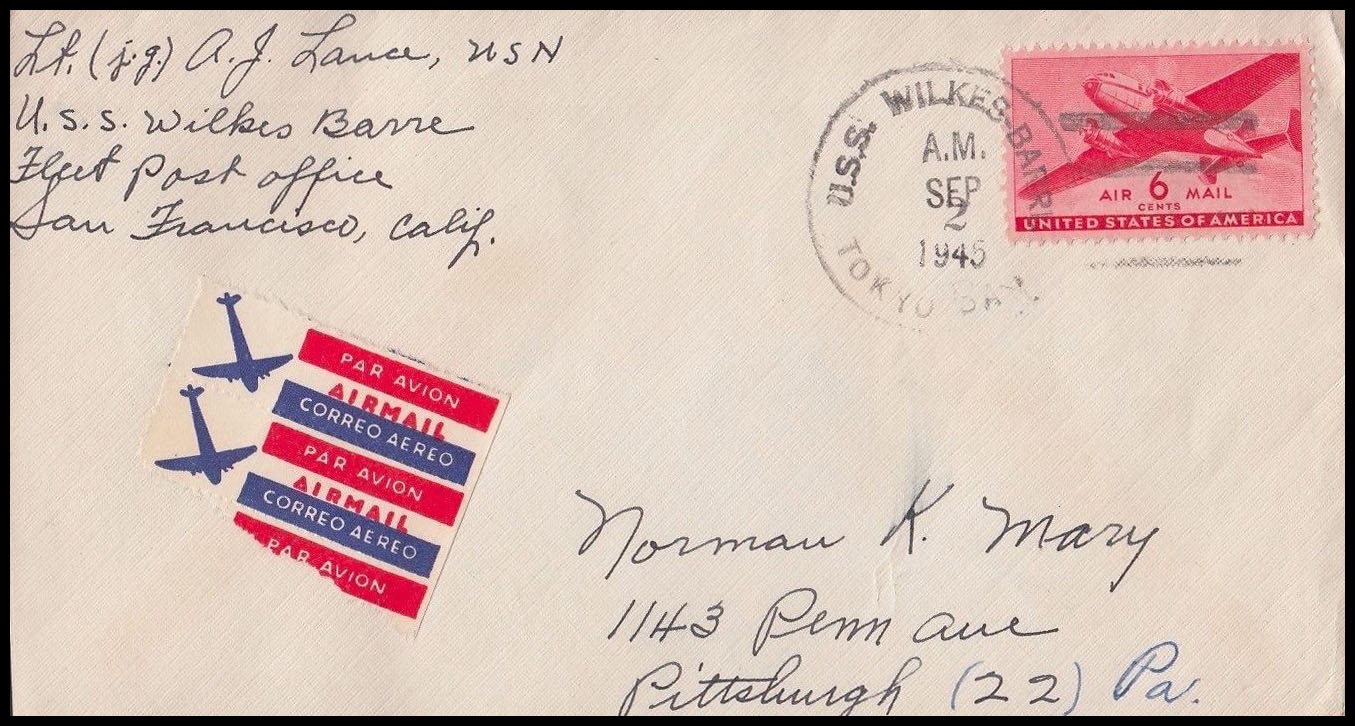 Lt. (j.g.) A. J. Lance, USN
U.S.S. Wilkes Barre
Fleet Post Office
San Francisco, Calif.
U.S.S. WILKES-BARRE
A.M.
SEP
2
1945
TOKYO BAY.
AIR 6 MAIL
CENTS
UNITED STATES OF AMERICA
PAR AVION
AIRMAIL
CORREO AEREO
PAR AVION
AIRMAIL
CORREO AEREO
PAR AVION
Norman K. Mary
1143 Penn Ave
Pittsburgh (22) Pa.